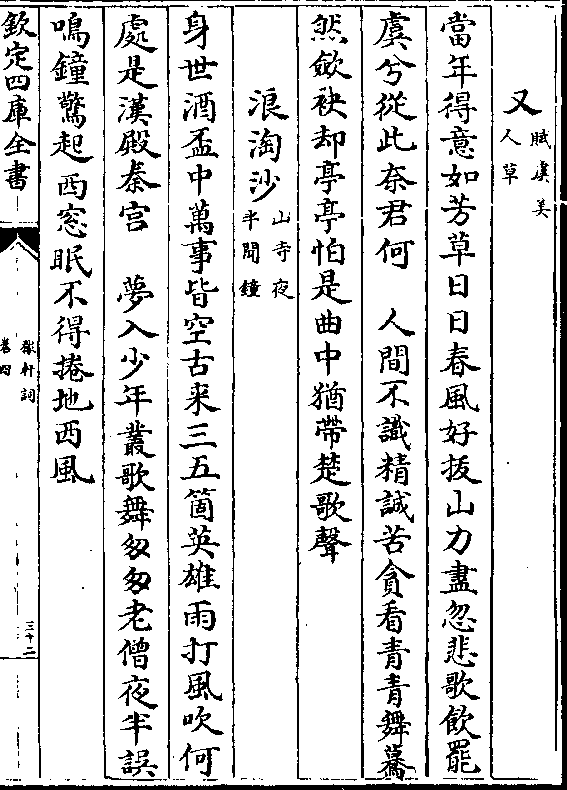 又賦虞美
人草
當年得意如芳草日日春風好拔山力盡忽悲歌飲罷
虞兮從此奈君何　人間不識精誠苦貪看青青舞驀
然斂袂却亭亭怕是曲中猶帶楚歌聲
浪淘沙山寺夜
半聞鐘
身世酒盃中萬事皆空古来三五箇英雄雨打風吹何
處是漢殿秦宫　夢入少年叢歌舞匆匆老僧夜半誤
鳴鐘驚起西窓眠不得捲地西風
欽定四庫全書
稼軒詞
卷四
三十二